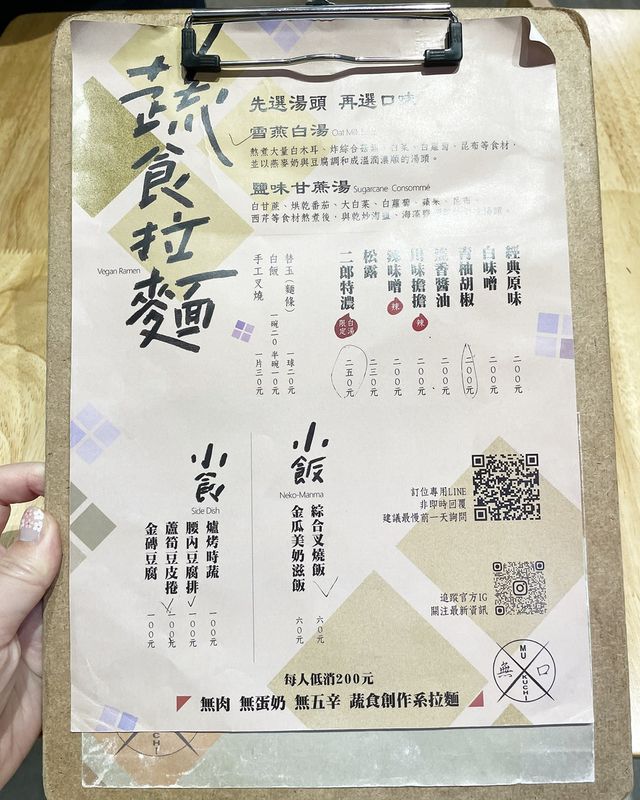 蔬食拉麵
Vegan Ramen
先選湯頭 再選口味
雪燕白湯 Oat Milk
熬煮大量白木耳、炸綜合菇類、白菜、白蘿蔔、昆布等食材,
並以燕麥奶與豆腐調和成溫潤濃順的湯頭。
鹽味甘蔗湯 Sugarcane Consommé
白甘蔗、烘乾番茄、大白菜、白蘿蔔、蘋果、昆布、
西芹等食材熬煮後,與乾炒海鹽、海藻鹽
經典原味 二〇〇元
白味噌 二〇〇元
青柚胡椒 二〇〇元
香醬油 二〇〇元
川味擔擔 辣 二〇〇元
辣味噌 辣 二〇〇元
松露 二三〇元
二郎特濃 白湯限定 二五〇元
替玉(麵條) 一球二〇元
白飯 一碗二〇 半碗一〇元
手工叉燒 一片三〇元
小飯
Neko-Manma
綜合叉燒飯 六〇元
金瓜美奶滋飯 六〇元
小食
Side Dish
爐烤時蔬 一〇〇元
腰內豆腐排 一〇〇元
蘆筍豆皮捲 一〇〇元
金磚豆腐 一〇〇元
訂位專用LINE
非即時回覆
建議最慢前一天詢問
追蹤官方IG
關注最新資訊
MU
無 口
KUCHI
每人低消200元
無肉 無蛋奶 無五辛 蔬食創作系拉麵